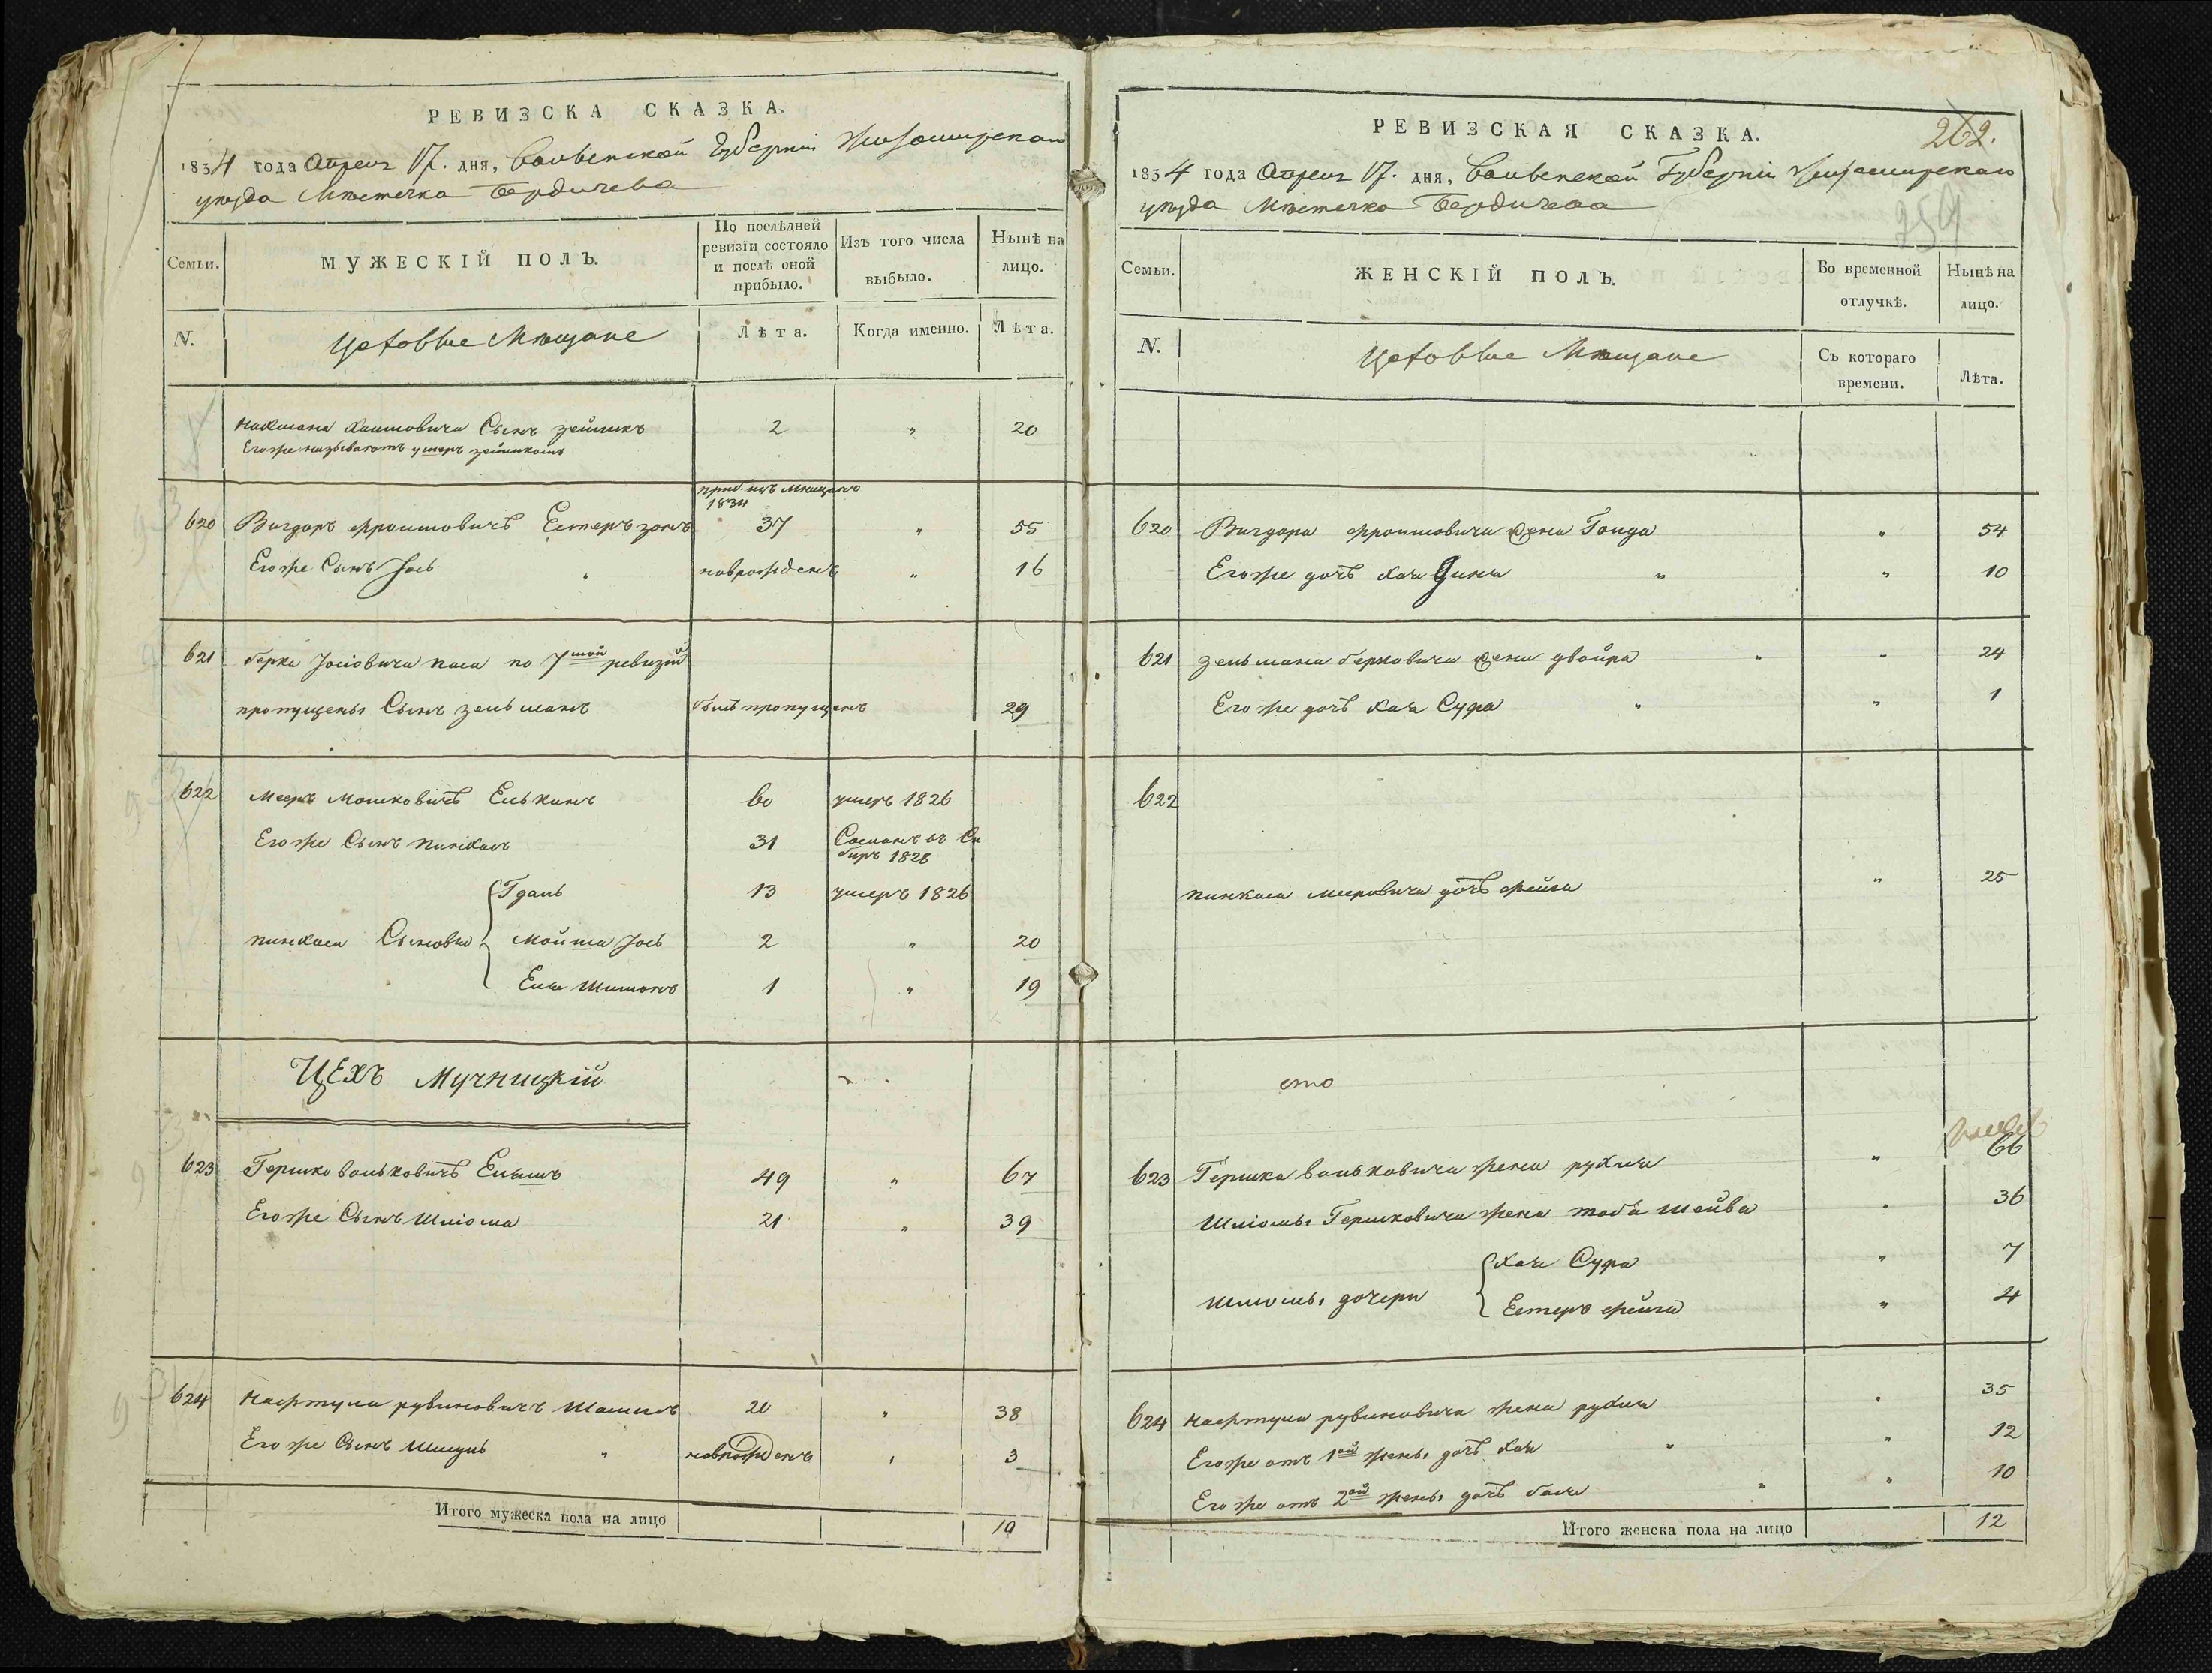 РЕВИЗСКА СКАЗКА.
1834 года Апреля 17. дня, Волынской Губерніи Житомирскаго
уезда Местечка Бердичева
Семьи.
МУЖЕСКІЙ ПОЛЪ.
По послѣдней ревизіи состояло и послѣ оной прибыло.
Изъ того числа выбыло.
Нынѣ на лицо.
N.
Цеховые Мещане
Лѣта.
Когда именно.
Лѣта.
Нахмана Хаимовича Сынъ Зейликъ 2 " 20
Его же называютъ
приб. изъ мещанъ 1834
620 Вигдоръ Фроимовичъ Естерзонъ 37 " 55
Его же Сынъ Іось "новрожденъ " 16
621 Берка Іосіовича паса по 7мой ревизіи
пропущены Сынъ Зельманъ былъ пропущенъ 29
622 Мееръ Мошковичъ Елькинъ 60 умеръ 1826
Его же Сынъ Пинхасъ 31 Сосланъ въ Си
биръ 1828
Гдаль 13 умеръ 1826
Пинхаса Сыновья Мойша Іось 2 " 20
Елья Шимонъ 1 " 19
ЦЕХЪ Мучницкій
623 Гершко Вольковичъ 49 " 67
Его же Сынъ Шліома 21 " 39
624 Нафтула Рувиновичъ 20 " 38
Его же Сынъ Шмуль " новрожденъ " 3
Итого мужеска пола на лицо 19
РЕВИЗСКАЯ СКАЗКА.
262.
1834 года Апреля 17. дня, Волынской Губерніи Житомирскаго
уезда Местечка Бердичева
759
Семьи.
ЖЕНСКІЙ ПОЛЪ.
Во временной отлучкѣ.
Нынѣ на лицо.
N.
Цеховые Мещане
Съ котораго времени.
Лѣта.
620 Вигдора Фроимовича жена Голда " 54
Его же дочь Хая Дина " " 10
621 Зельмана Берковича жена Двойра " " 24
Его же дочь Хая Сура " " 1
622
Пинхаса Меировича дочь Фейга " 25
623 Гершка Вольковича жена Рухля " 66
Шліомы Гершковича жена Тоба Шейва " 36
Хая Сура " 7
Шліомы дочери
Естеръ Фейга " 4
624 Нафтула Рувиновича жена Рухля " 35
Его же отъ 1ой жены дочь Хая " " 12
Его же отъ 2ой жены дочь Бася " " 10
Итого женска пола на лицо 12